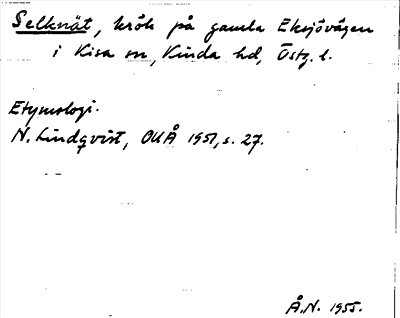 Selknät, krök på gamla Eksjövägen
i Kisa sn, Kinda hd, Östg. l.
Etymologi.
N. Lindqvist, OUÅ 1951, s. 27.
Å.N. 1955.